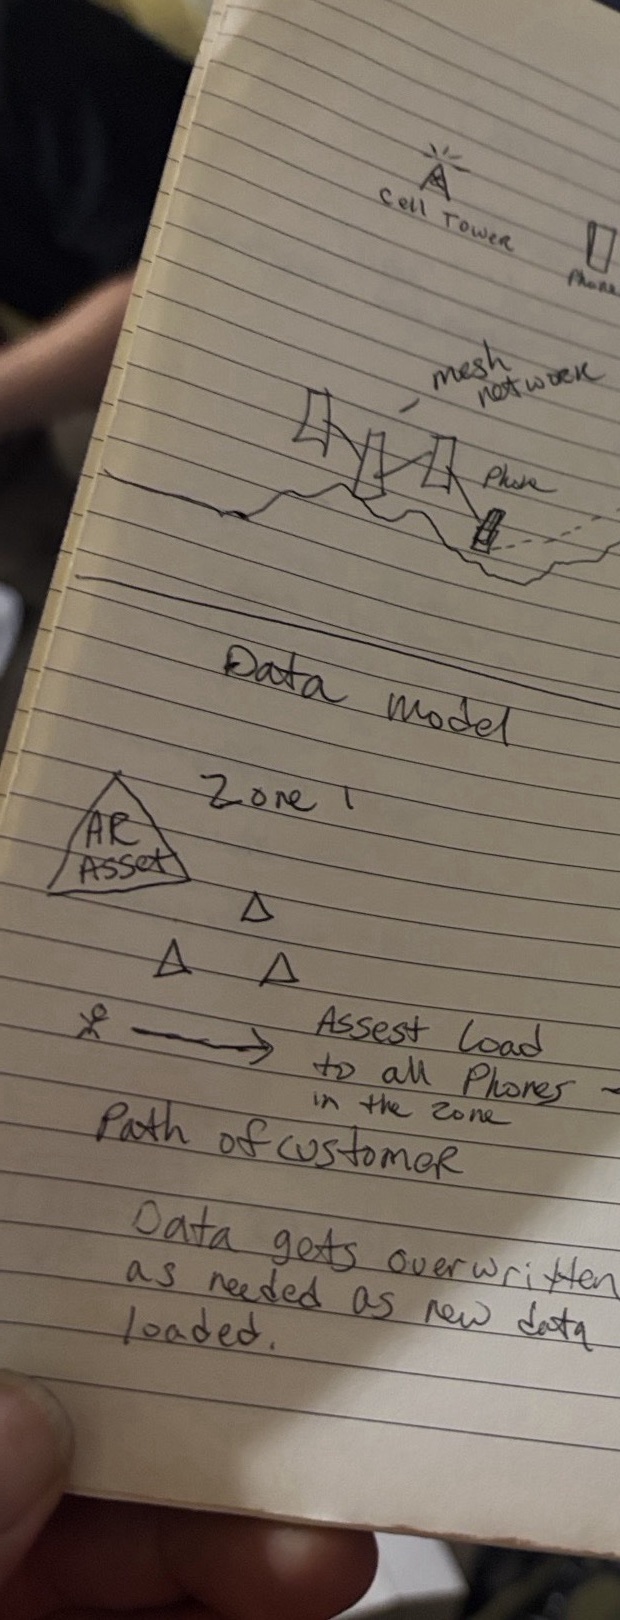 Cell Tower
Phone
mesh
network
Phone
Data Model
Zone 1
AR
Asset
Assest Load
to all Phones -
in the zone
Path of customer
Data gets overwritten
as needed as new data
loaded.